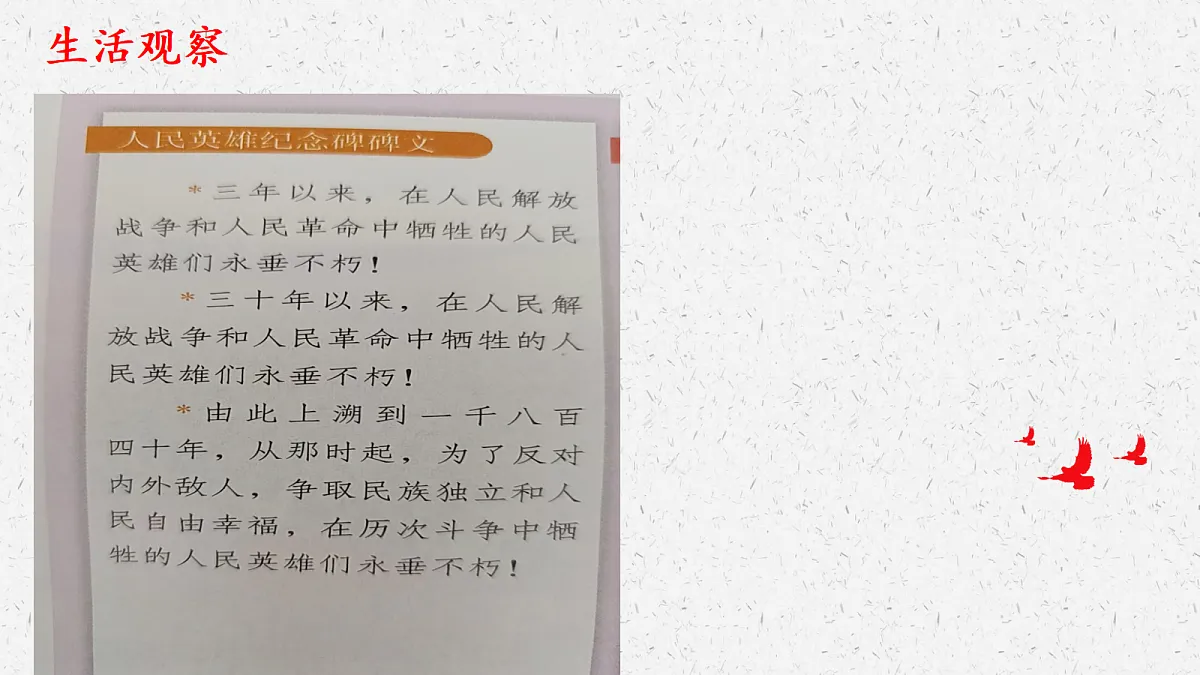 生活观察
人民英雄纪念碑碑文
*三年以来，在人民解放
战争和人民革命中牺牲的人民
英雄们永垂不朽！
*三十年以来，在人民解
放战争和人民革命中牺牲的人
民英雄们永垂不朽！
*由此上溯到一千八百
四十年，从那时起，为了反对
内外敌人，争取民族独立和人
民自由幸福，在历次斗争中牺
牲的人民英雄们永垂不朽！